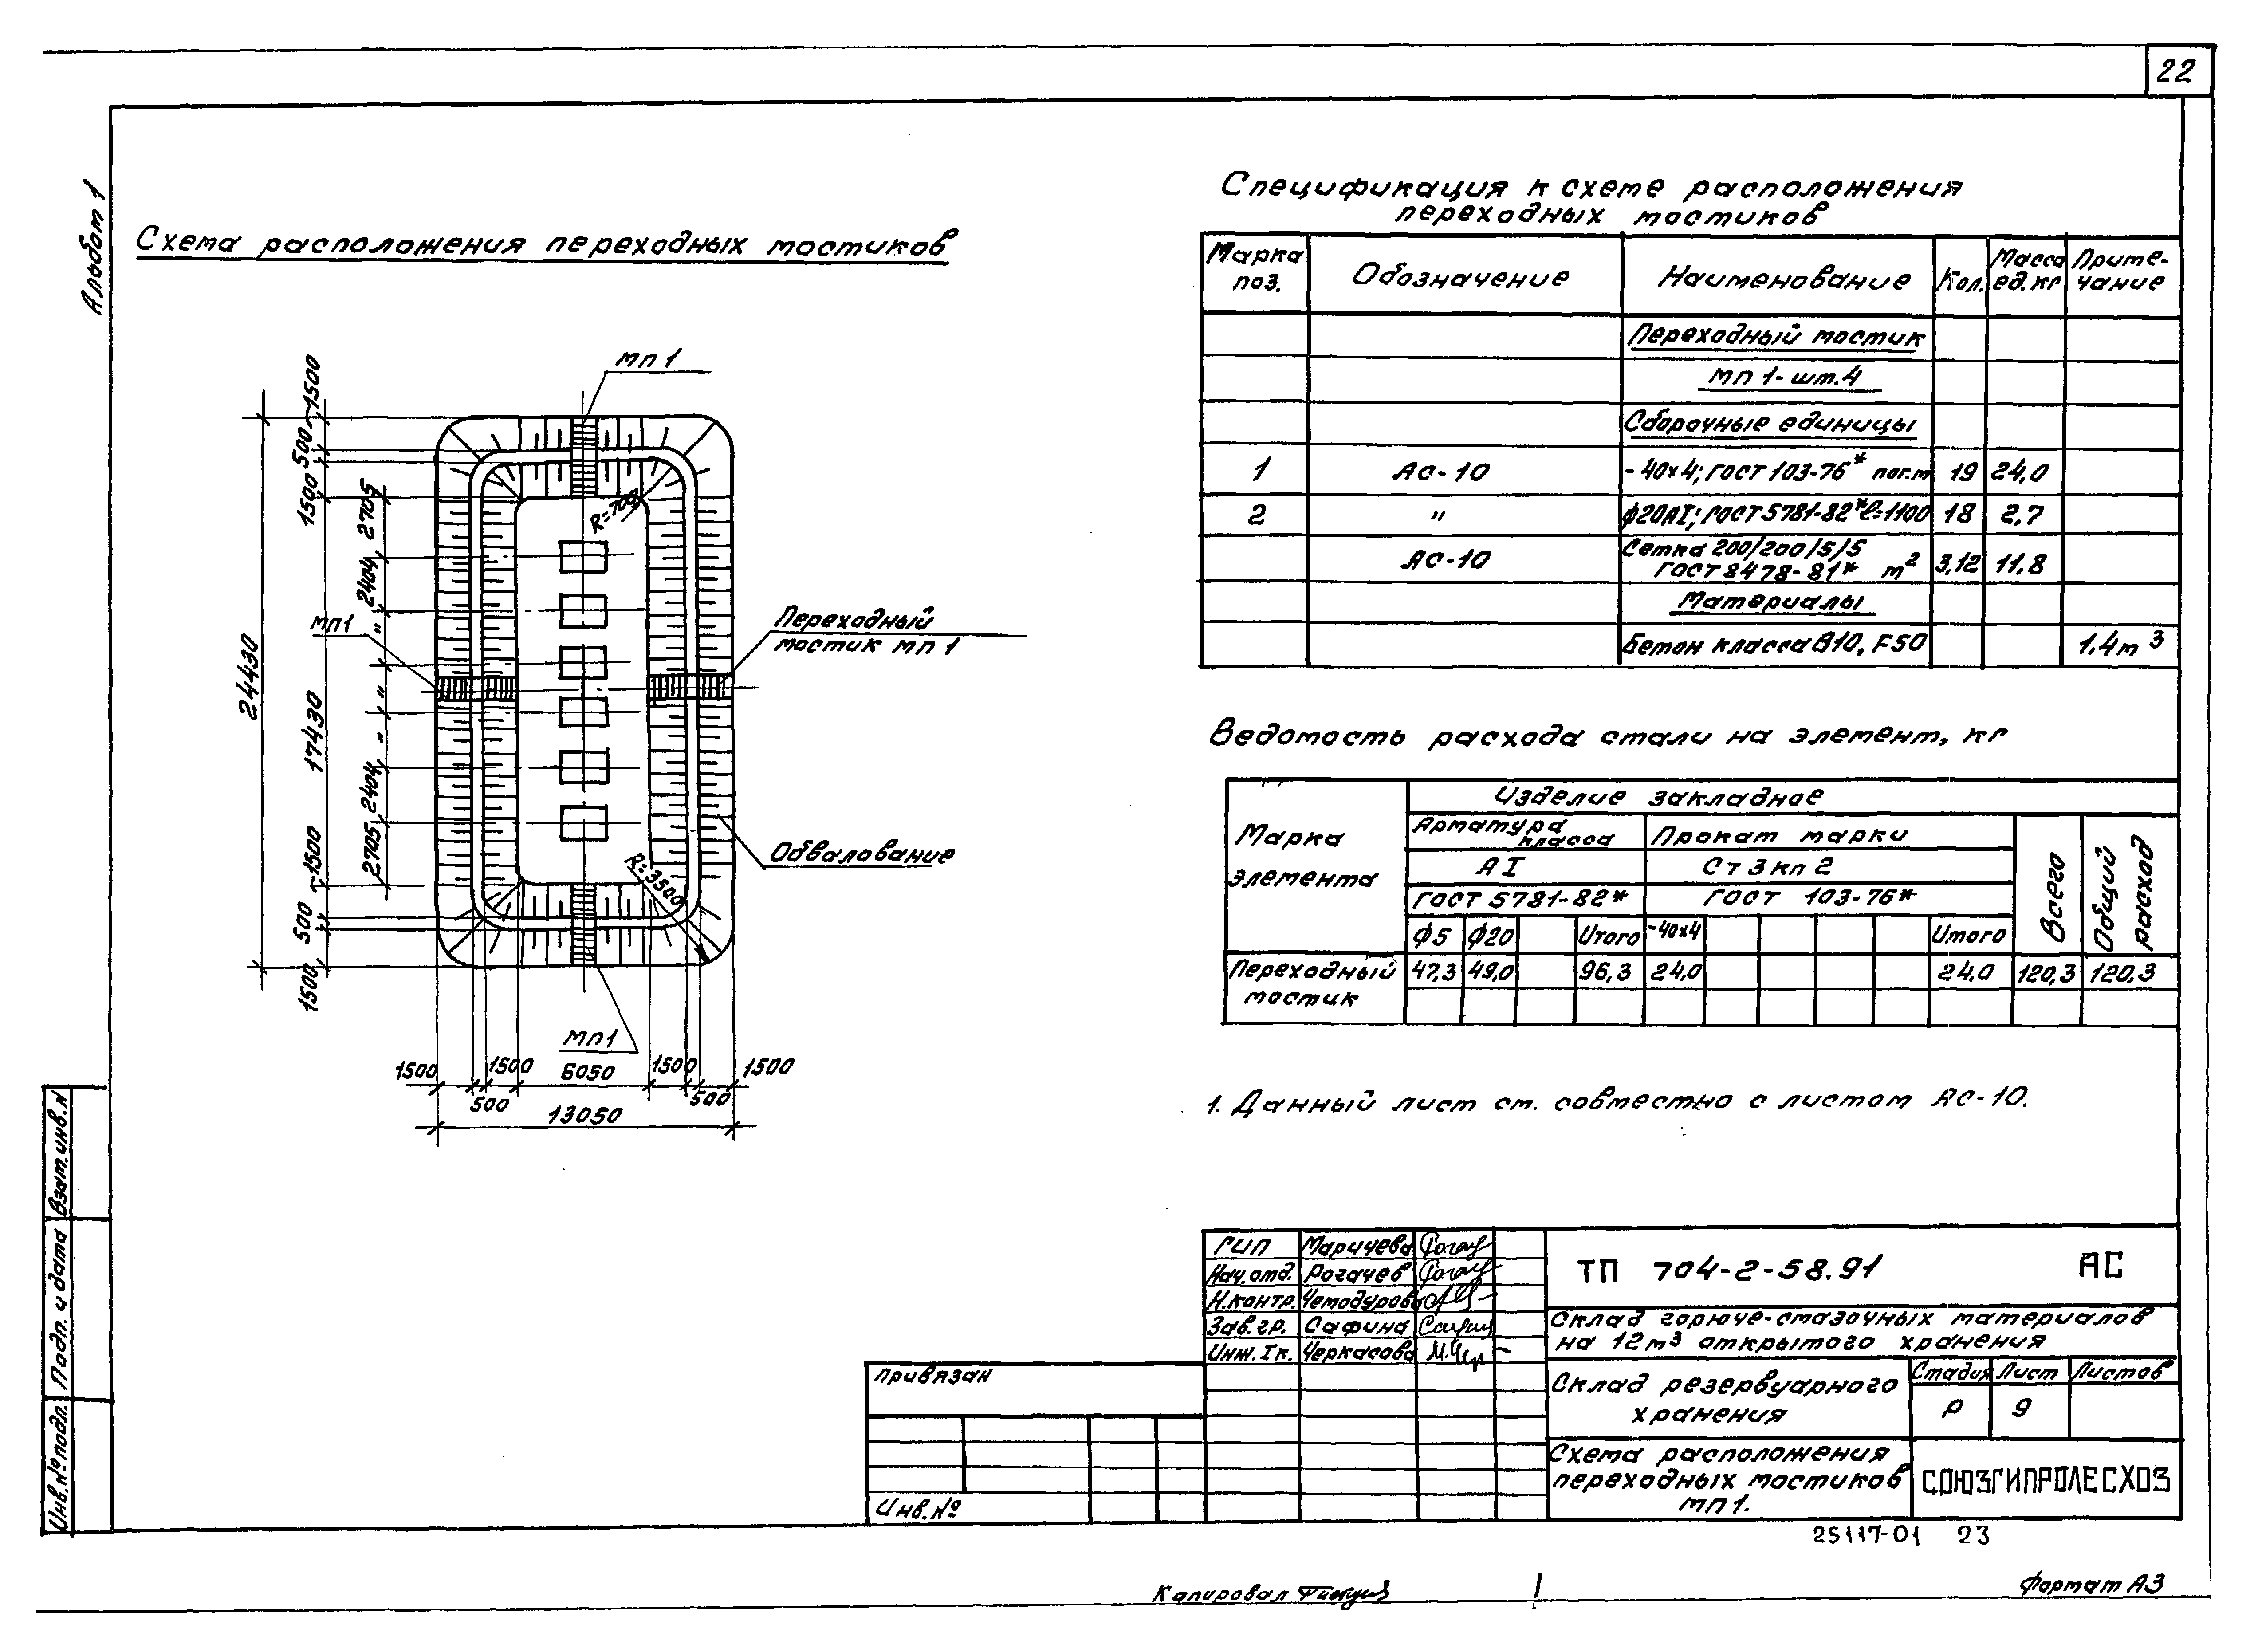 22
Альбом 1
Схема расположения переходных мостиков
МП 1
1500
500
1500
2705
2404
"
"
"
2404
2705
24430
17430
1500
500
1500
МП1
R=709
Переходный
мостик МП 1
Обвалование
R=3500
МП1
1500
1500
6050
1500
1500
500
500
13050
Спецификация к схеме расположения
переходных мостиков
Марка поз. Обозначение Наименование Кол. Масса ед. кг Примечание
Переходный мостик
МП 1- шт.4
Сборочные единицы
1 АС-10 - 40х4; ГОСТ 103-76* пог.м 19 24,0
2 " ф20АI; ГОСТ 5781-82* l=1100 18 2,7
АС-10 Сетка 200/200/5/5 ГОСТ 8478-81* м² 3,12 11,8
Материалы
Бетон класса В10, F50 1,4м³
Ведомость расхода стали на элемент, кг
Марка элемента
Изделие закладное
Арматура класса Прокат марки
АI Ст3кп2
ГОСТ 5781-82* ГОСТ 103-76*
Всего Общий расход
ф5 ф20 Итого -40х4 Итого
Переходный мостик 47,3 49,0 96,3 24,0 24,0 120,3 120,3
1. Данный лист см. совместно с листом АС-10.
ГИП Маричева
Нач.отд. Рогачев
Н.контр. Чемодурова
Зав.гр. Сафина
Инж. Iк. Черкасова
ТП 704-2-58.91 АС
Склад горюче-смазочных материалов
на 12м³ открытого хранения
Склад резервуарного
хранения
Стадия Лист Листов
Р 9
Схема расположения
переходных мостиков
МП1.
СОЮЗГИПРОЛЕСХОЗ
Привязан
Инв.№
Взам.инв.№
Подп. и дата
Инв.№подл.
25117-01 23
Копировал
Формат А3